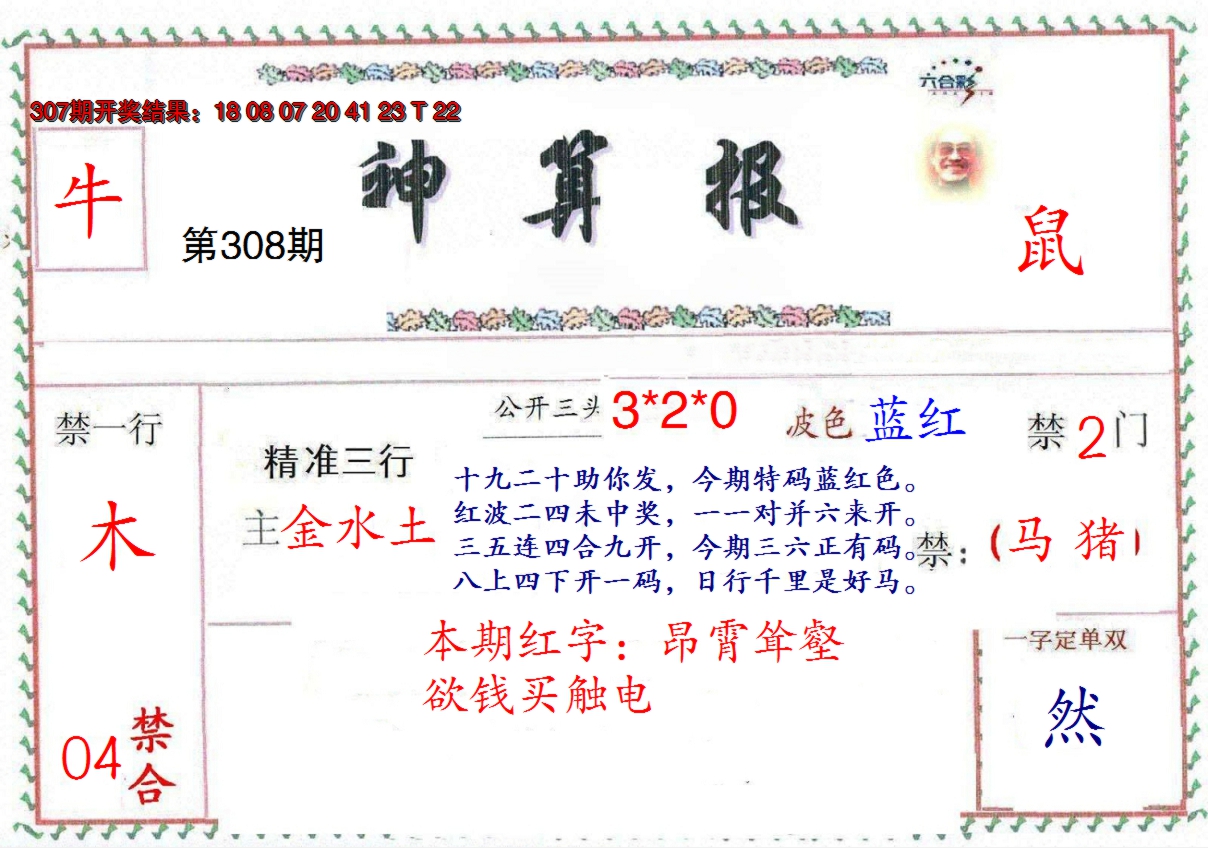 六合彩
307期开奖结果：18 08 07 20 41 23 T 22
牛
神算报
第308期
鼠
禁一行
木
04
禁合
精准三行
主金水土
公开三头 3*2*0
波色 蓝红
禁2门
禁：（马 猪）
十九二十助你发，今期特码蓝红色。
红波二四未中奖，一一对并六来开。
三五连四合九开，今期三六正有码。
八上四下开一码，日行千里是好马。
本期红字：昂霄耸壑
欲钱买触电
一字定单双
然